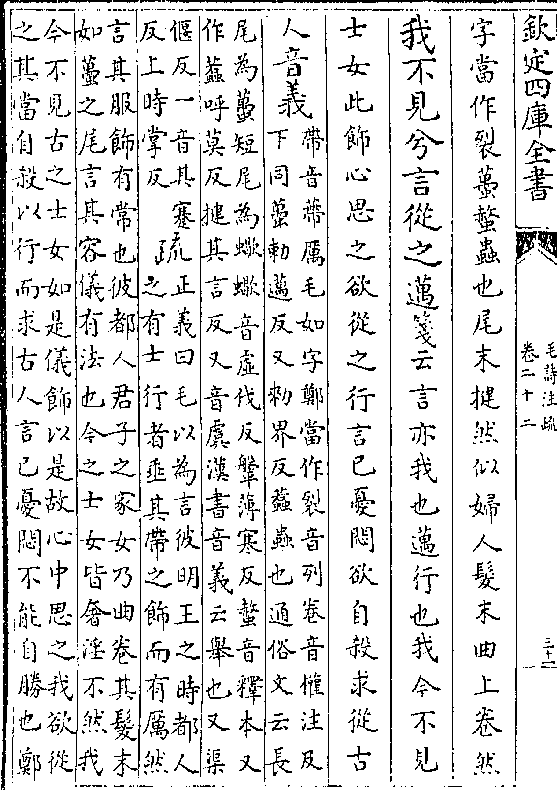 欽定四庫全書
毛詩注疏
卷二十二
三十二
字當作裂蠆螫蟲也尾末揵然似婦人髮末曲上卷然
我不見兮言從之邁箋云言亦我也邁行也我今不見
士女此飾心思之欲從之行言已憂悶欲自殺求從古
人音義
帶音蔕厲毛如字鄭當作裂音列卷音權注及
下同蠆勅邁反又勑界反蠚蟲也通俗文云長
尾為蠆短尾為蠍蠍音虛伐反鬈薄寒反螫音釋本又
作蠚呼莫反揵其言反又音虔漢書音義云舉也又渠
偃反一音其蹇
反上時掌反
疏
正義曰毛以為言彼明王之時都人
之有士行者垂其帶之飾而有厲然
言其服飾有常也彼都人君子之家女乃曲卷其髮末
如蠆之尾言其容儀有法也今之士女皆奢淫不然我
今不見古之士女如是儀飾以是故心中思之我欲從
之其當自殺以行而求古人言已憂悶不能自勝也鄭